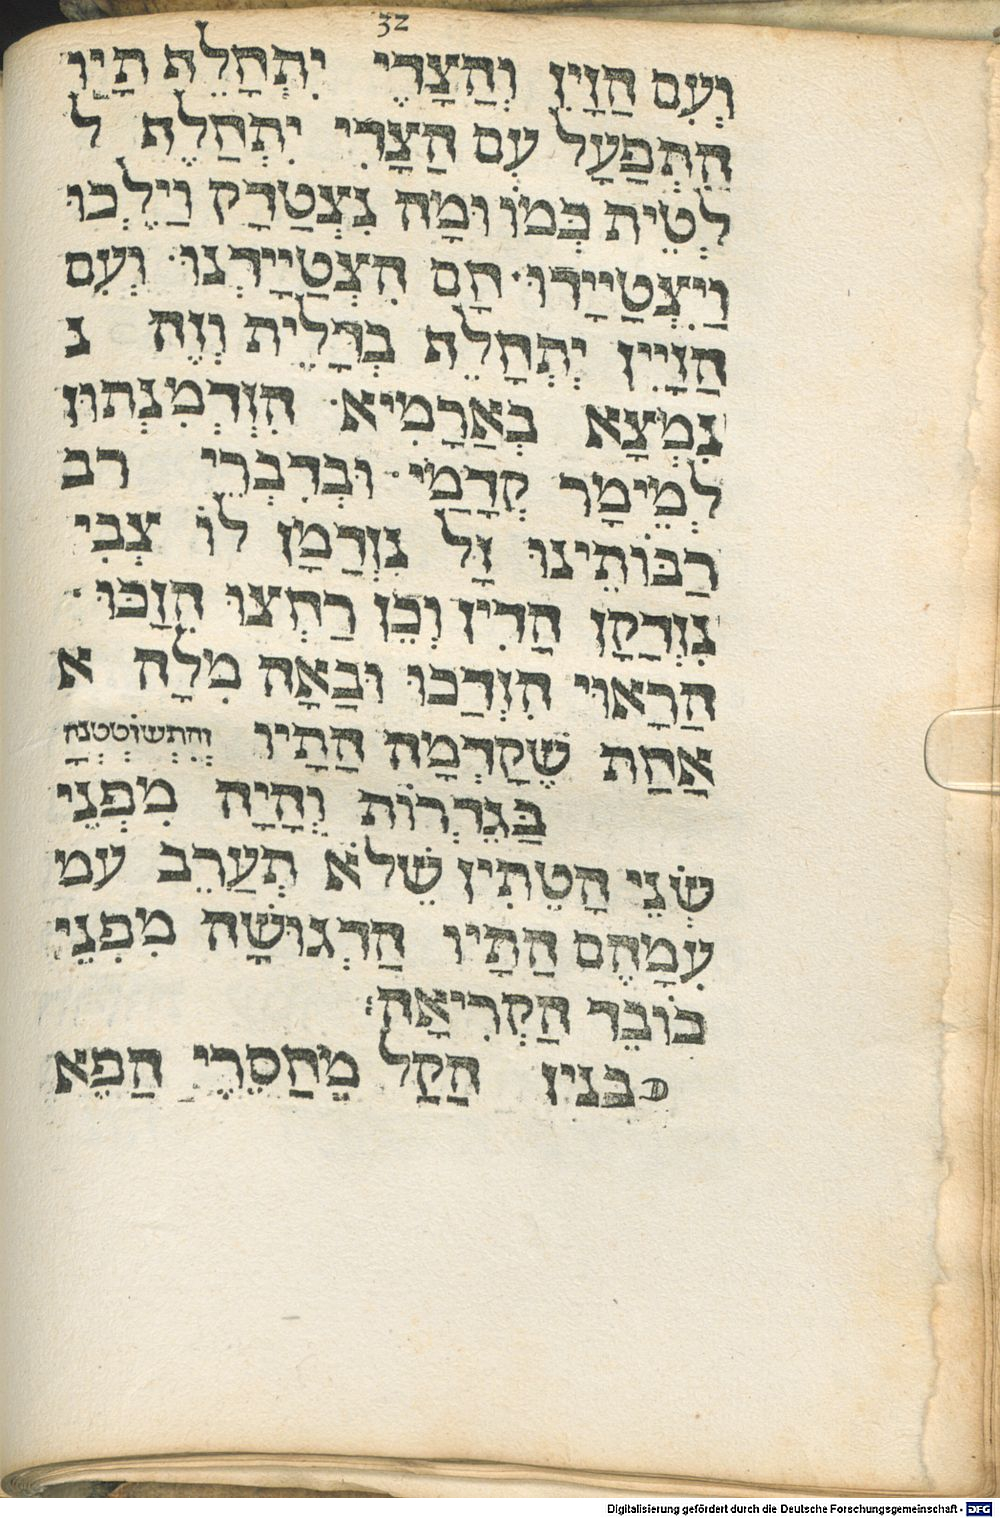 32
וְעִם הַזָיִן וְהַצָדֵי יִתְחָלֵף תָיו
הִתְפַעֵל עִם הַצָדִי יִתְחַלֵף ל
לְטֵית כְּמוֹ וּמַה נִצְטַדָק וַיֵלְכוּ
וַיִצְטַיָירוּ חָם הִצְטַיַירְנוּ וְעִם
הַזָיִין יִתְחָלֵף בְדָלֵית וְזֶה נ
נִמְצָא בְאַרַמִיא הִזְדְמִנְתוּן
לְמֵימָר קְדָמַי וּבְדִבְרֵי רב
רַבּוֹתֵינוּ זָל נִזְדַמָן לוֹ צְבִי
נִזְדַקָן הַדִין וְכֵן רַחְצוּ הִזַכּוּ
הַרָאוּי הִזְדַכוּ וּבַאָה מִלָה א
אַחַת שֶקָדְמָה הַתָיו וְהִתְשוֹטַטְנָה
בַּגְדֵרוֹת וְהָיָה מִפְנֵי
שְנֵי הַטֵתִין שֶלֹא תְעָרֵב עמ
עִמָהֶם הַתָיו הַדְגוּשָה מִפְנֵי
כוֹבֶד הַקְרִיאָה׃
בִנְיַן הַקַל מֵחַסְרֵי הַפֵא
Digitalisierung gefördert durch die Deutsche Forschungsgemeinschaft - DFG